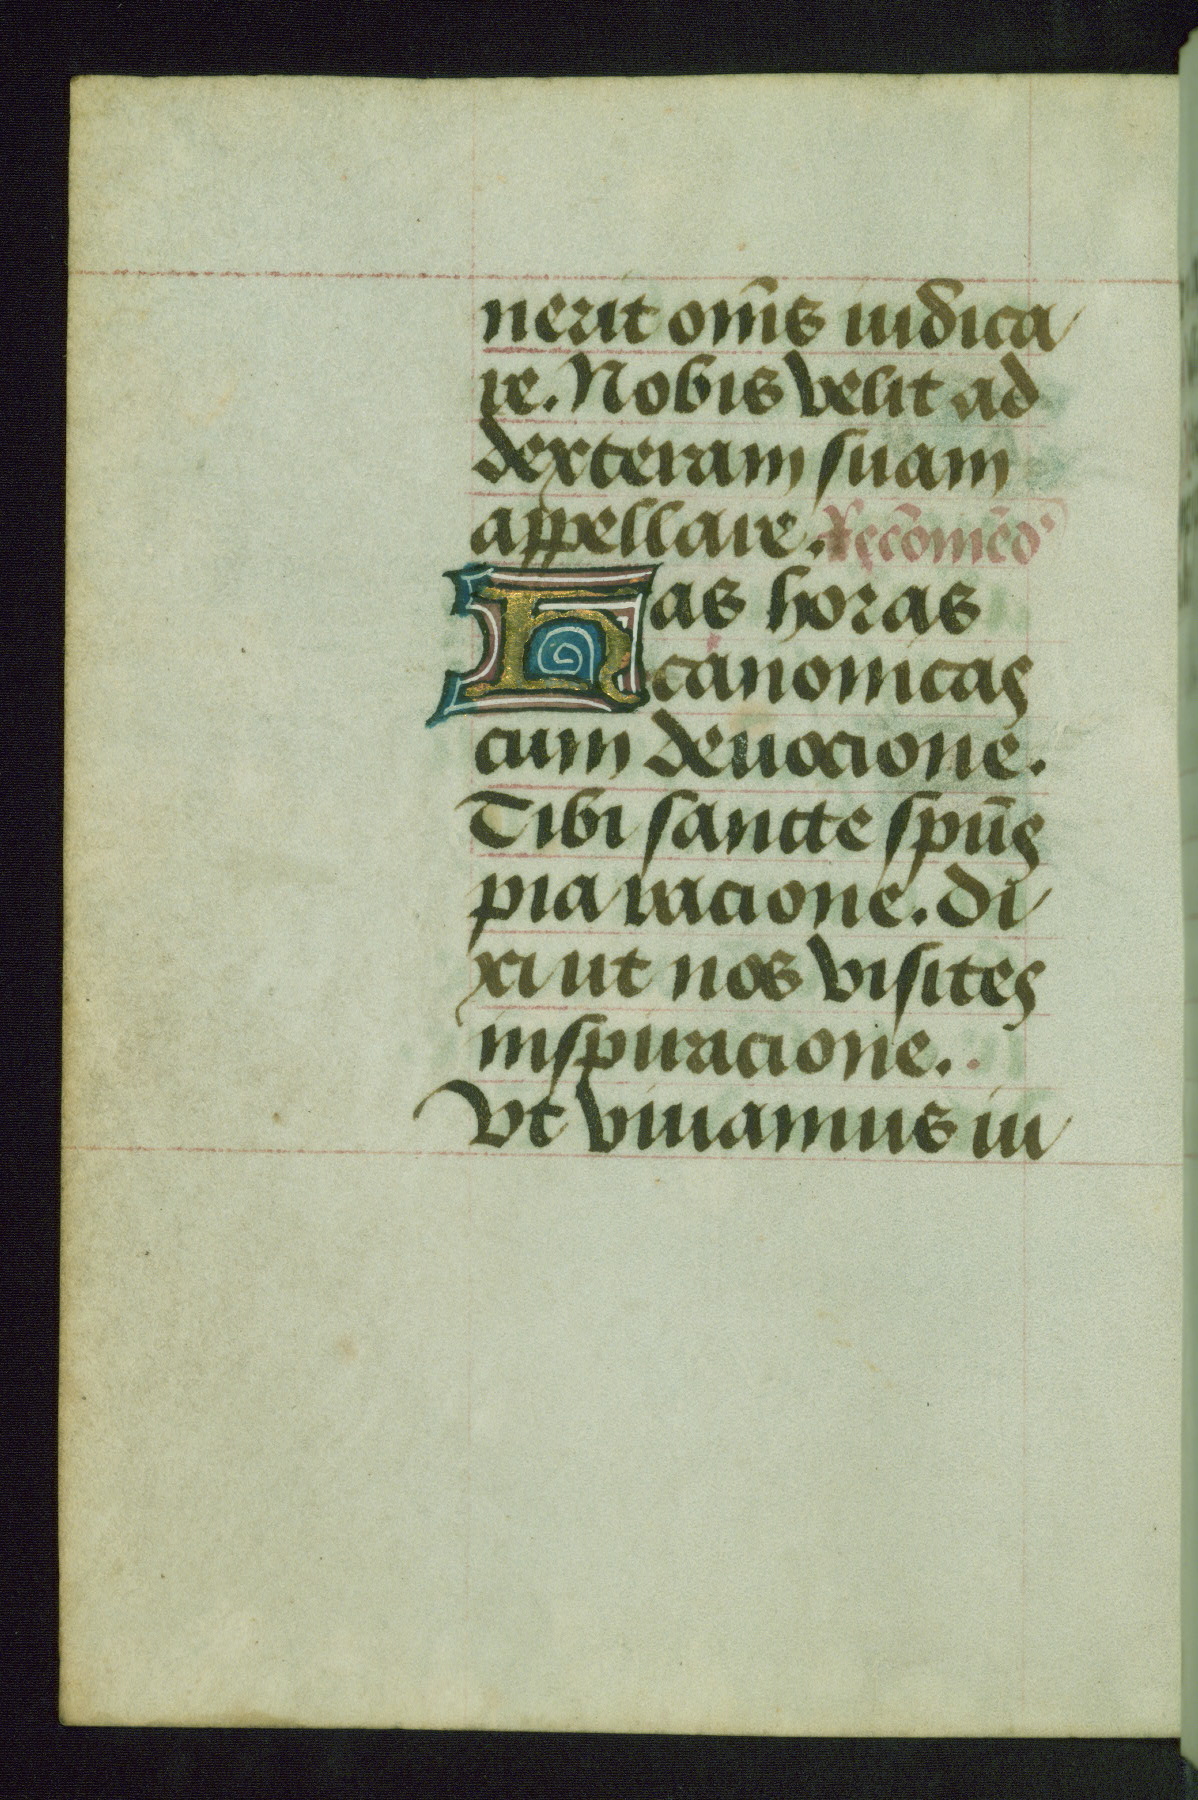 nerit om̄s iudica
re. Nobis velit ad
dexteram suam
appellare. Recōmēd'
Has horas
canonicas
cum deuocione.
Tibi sancte spūs
pia racione. di
xi ut nos visites
inspiracione.
Vt viuamus iu